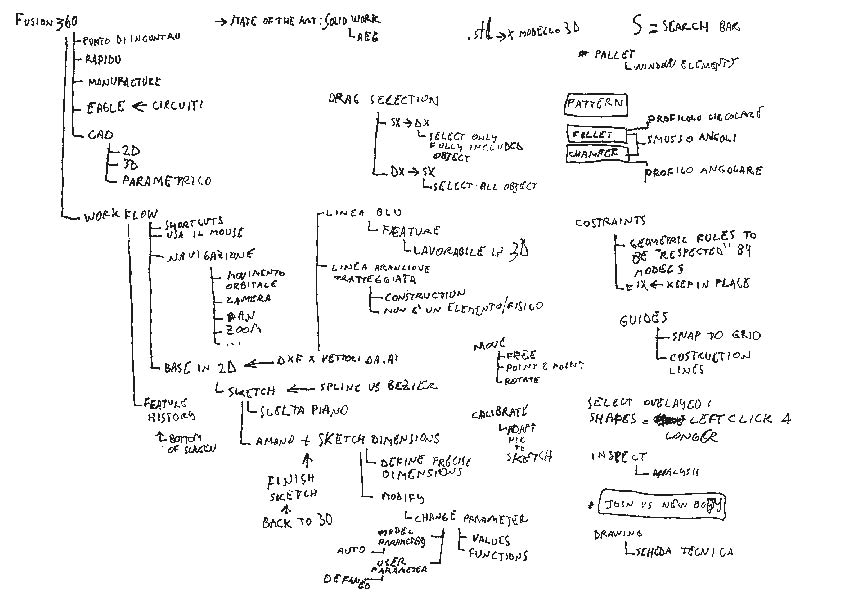 FUSION 360
PUNTO DI INCONTRO
RAPIDO
MANUFACTURE
EAGLE ← CIRCUITI
CAD
2D
3D
PARAMETRICO
WORKFLOW
SHORTCUTS
USA IL MOUSE
NAVIGAZIONE
MOVIMENTO
ORBITALE
CAMERA
PAN
ZOOM
...
BASE IN 2D ← DXF X VETTORI DA .AI
SKETCH ← SPLINE VS BEZIER
SCELTA PIANO
A MANO + SKETCH DIMENSIONS
FINISH
SKETCH
BACK TO 3D
DEFINE PRECISE
DIMENSIONS
MODIFY
CHANGE PARAMETER
VALUES
FUNCTIONS
MODEL
PARAMETER
AUTO
USER
PARAMETER
DEFINED
FEATURE
HISTORY
BOTTOM
OF SCREEN
→ STATE OF THE ART: SOLID WORK
.stl → X MODELLO 3D
S = SEARCH BAR
* PALLET
WINDOW ELEMENTS
DRAG SELECTION
SX → DX
SELECT ONLY
FULLY INCLUDED
OBJECT
DX → SX
SELECT ALL OBJECT
LINEA BLU
FEATURE
LAVORABILE IN 3D
LINEA ARANCIONE
TRATTEGGIATA
CONSTRUCTION
NON È UN ELEMENTO/FISICO
MOVE
FREE
POINT 2 POINT
ROTATE
CALIBRATE
ADAPT
PIC
TO
SKETCH
PATTERN
FILLET
CHAMFER
PROFILO CIRCOLARE
SMUSSO ANGOLI
PROFILO ANGOLARE
COSTRAINTS
GEOMETRIC RULES TO
BE "RESPECTED" BY
MODELS
FIX ← KEEP IN PLACE
GUIDES
SNAP TO GRID
COSTRUCTION
LINES
SELECT OVELAYED
SHAPES = LEFT CLICK 4
LONGER
INSPECT
ANALYSIS
* JOIN VS NEW BODY
DRAWING
SCHEDA TECNICA